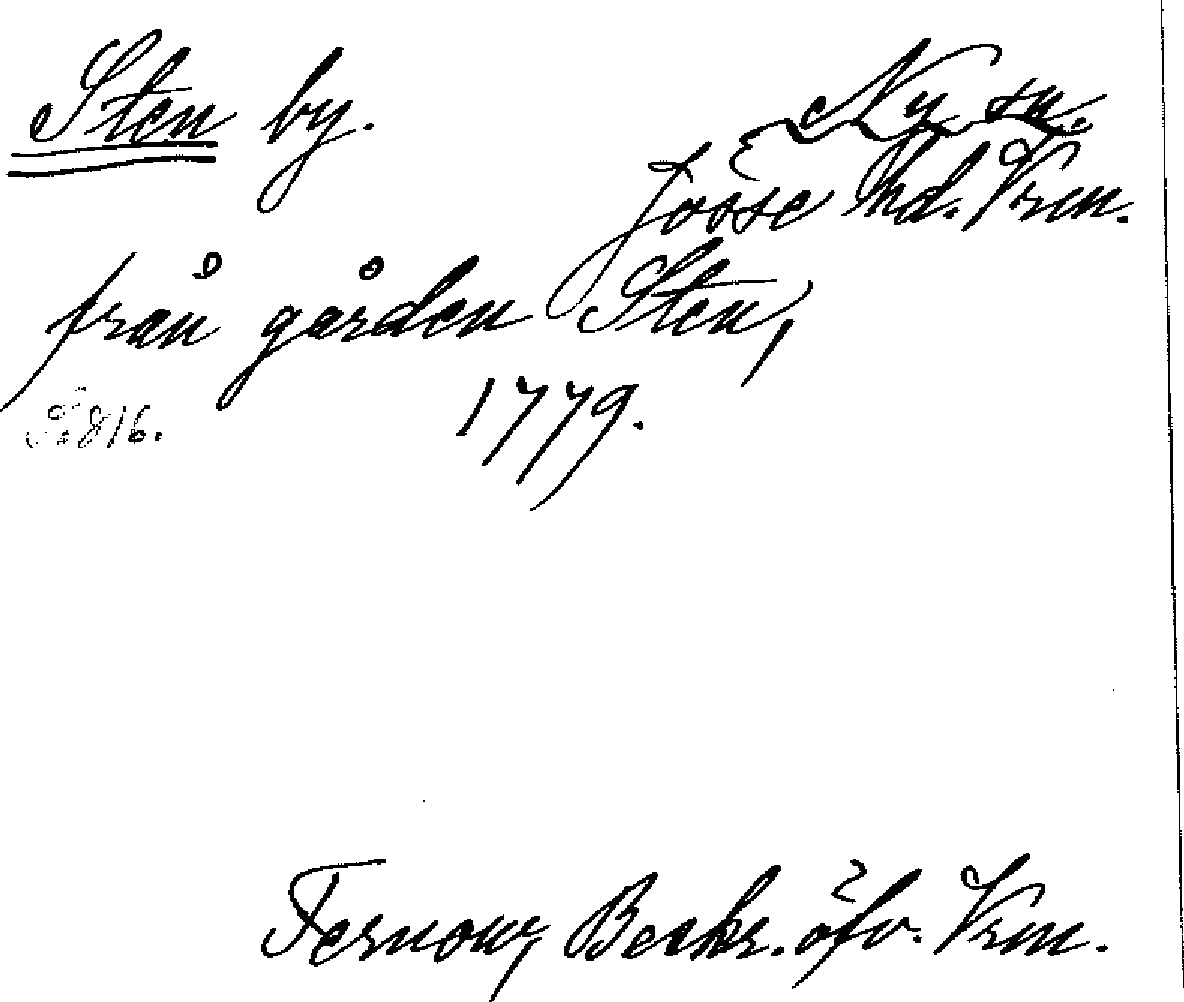 Sten by.
Ny sn.
Jösse hd. Vrm.
från gården Sten,
S. 816.
1779.
Fernow, Beskr. öfv. Vrm.